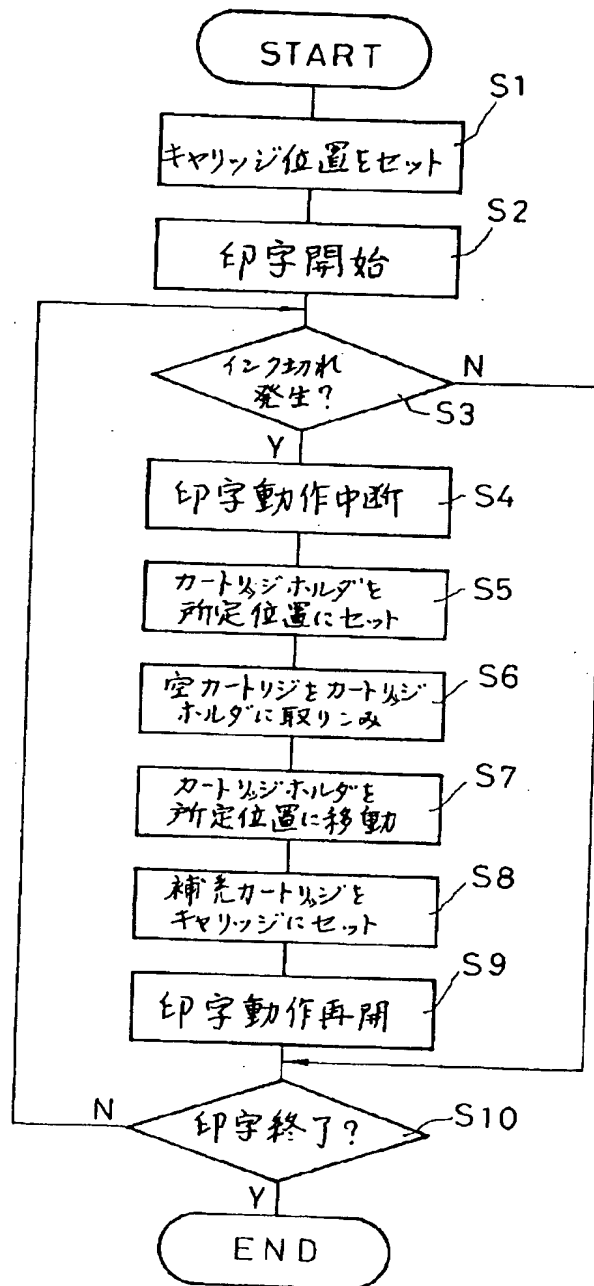 START
S1
キャリッジ位置をセット
S2
印字開始
インク切れ
発生?
N
S3
Y
印字動作中断
S4
カートリッジホルダを
所定位置にセット
S5
空カートリジをカートリッジ
ホルダに取りこみ
S6
カートリッジホルダを
所定位置に移動
S7
補充カートリッジを
キャリッジにセット
S8
印字動作再開
S9
N
印字終了?
S10
Y
END